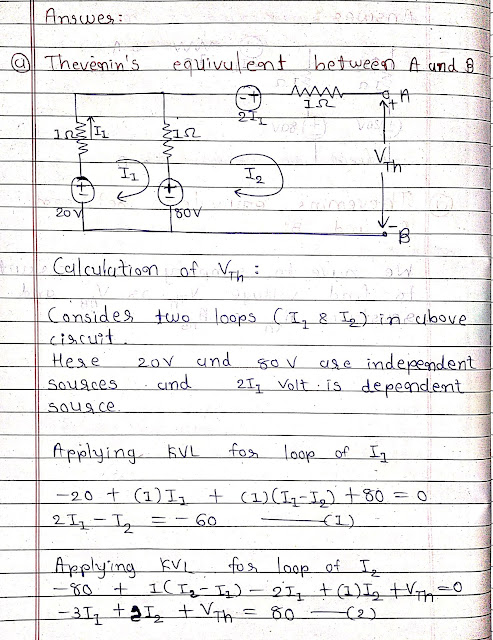 Answer:
(a) Thevenin's equivalent between A and B
- +
2I₁
1Ω
A
+
1Ω
I₁
1Ω
I₁
I₂
V_Th
20V
80V
-
B
Calculation of V_Th :
Consider two loops (I₁ & I₂) in above
circuit.
Here 20V and 80V are independent
sources and 2I₁ Volt is dependent
source.
Applying KVL for loop of I₁
-20 + (1)I₁ + (1)(I₁-I₂) + 80 = 0
2I₁ - I₂ = -60 ——(1)
Applying KVL for loop of I₂
-80 + 1(I₂-I₁) - 2I₁ + (1)I₂ + V_Th = 0
-3I₁ + 2I₂ + V_Th = 80 ——(2)